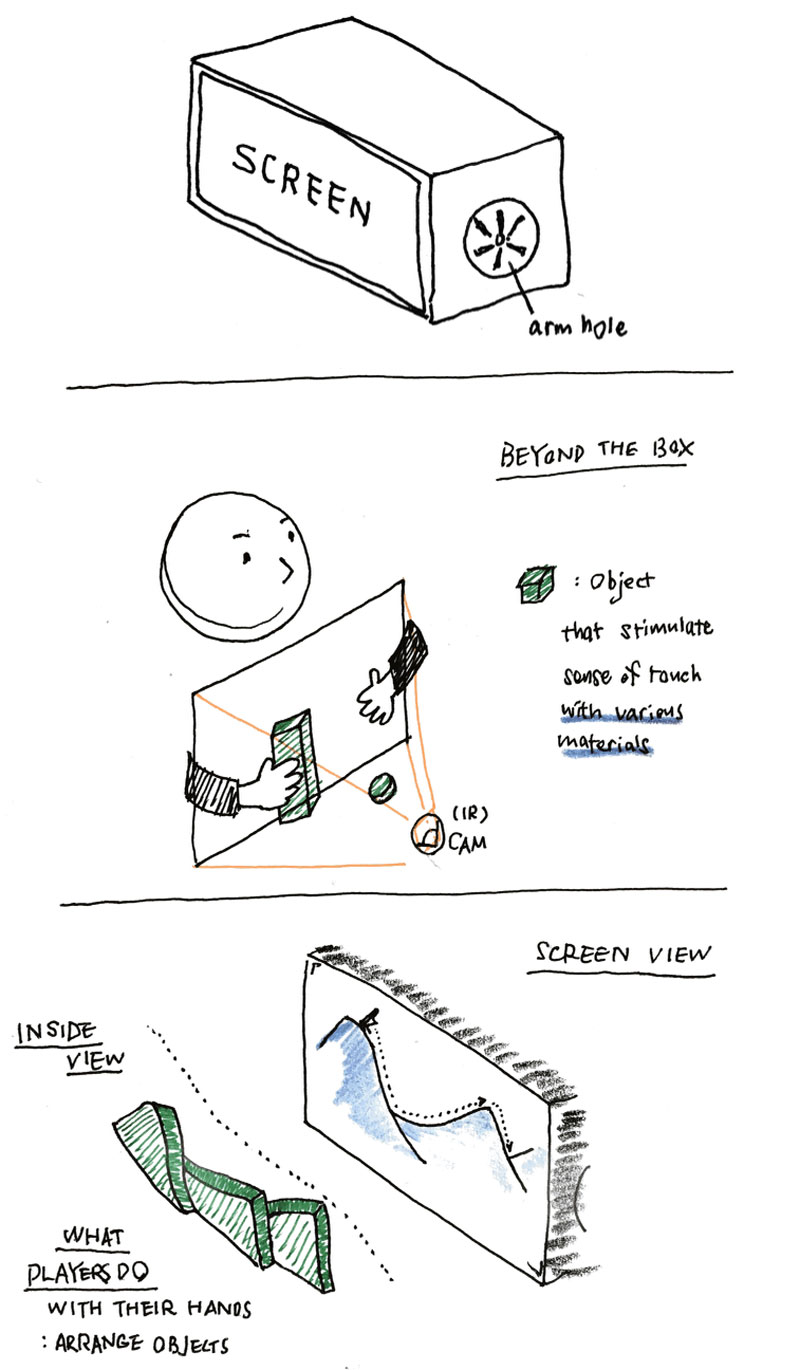 SCREEN
arm hole
BEYOND THE BOX
: Object
that stimulate
sense of touch
with various
materials
(IR)
CAM
SCREEN VIEW
INSIDE
VIEW
WHAT
PLAYERS DO
WITH THEIR HANDS
: ARRANGE OBJECTS